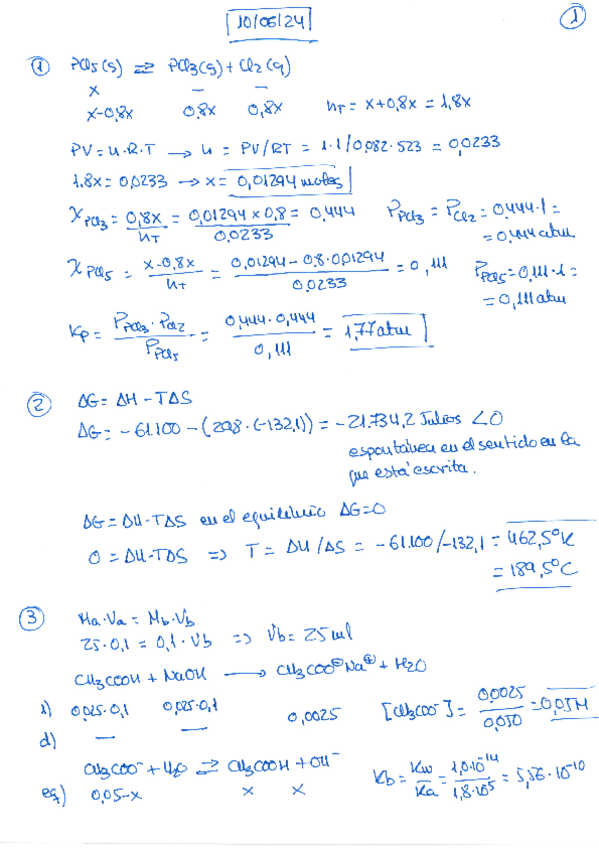 10/06/24
1
① PCl5(g) ⇌ PCl3(g) + Cl2(g)
x — —
x-0,8x 0,8x 0,8x nT = x+0,8x = 1,8x
PV = n·R·T → n = PV/RT = 1·1/0,082·523 = 0,0233
1.8x = 0,0233 → x = 0,01294 moles
XPCl3 = 0,8x/nT = 0,01294 x 0,8/0,0233 = 0,444 PPCl3 = PCl2 = 0,444·1 =
= 0,444 atm
XPCl5 = x-0,8x/nT = 0,01294 - 0,8·0,01294/0,0233 = 0,111 PPCl5 = 0,111·1 =
= 0,111 atm
Kp = PPCl3·PCl2/PPCl5 = 0,444·0,444/0,111 = 1,77 atm
② ΔG = ΔH - TΔS
ΔG = -61.100 - (298·(-132,1)) = -21.734,2 Julios < 0
espontánea en el sentido en la
que está escrita.
ΔG = ΔH - TΔS en el equilibrio ΔG = 0
0 = ΔH - TΔS ⇒ T = ΔH/ΔS = -61.100/-132,1 = 462,5°K
= 189,5°C
③ Ma·Va = Mb·Vb
25·0,1 = 0,1·Vb ⇒ Vb = 25 ml
CH3COOH + NaOH → CH3COO⊖Na⊕ + H2O
i) 0,025·0,1 0,025·0,1 0,0025 [CH3COO-] = 0,0025/0,050 = 0,05M
d) — —
CH3COO- + H2O ⇌ CH3COOH + OH- Kb = Kw/Ka = 1,0·10-14/1,8·10-5 = 5,56·10-10
eq) 0,05-x x x